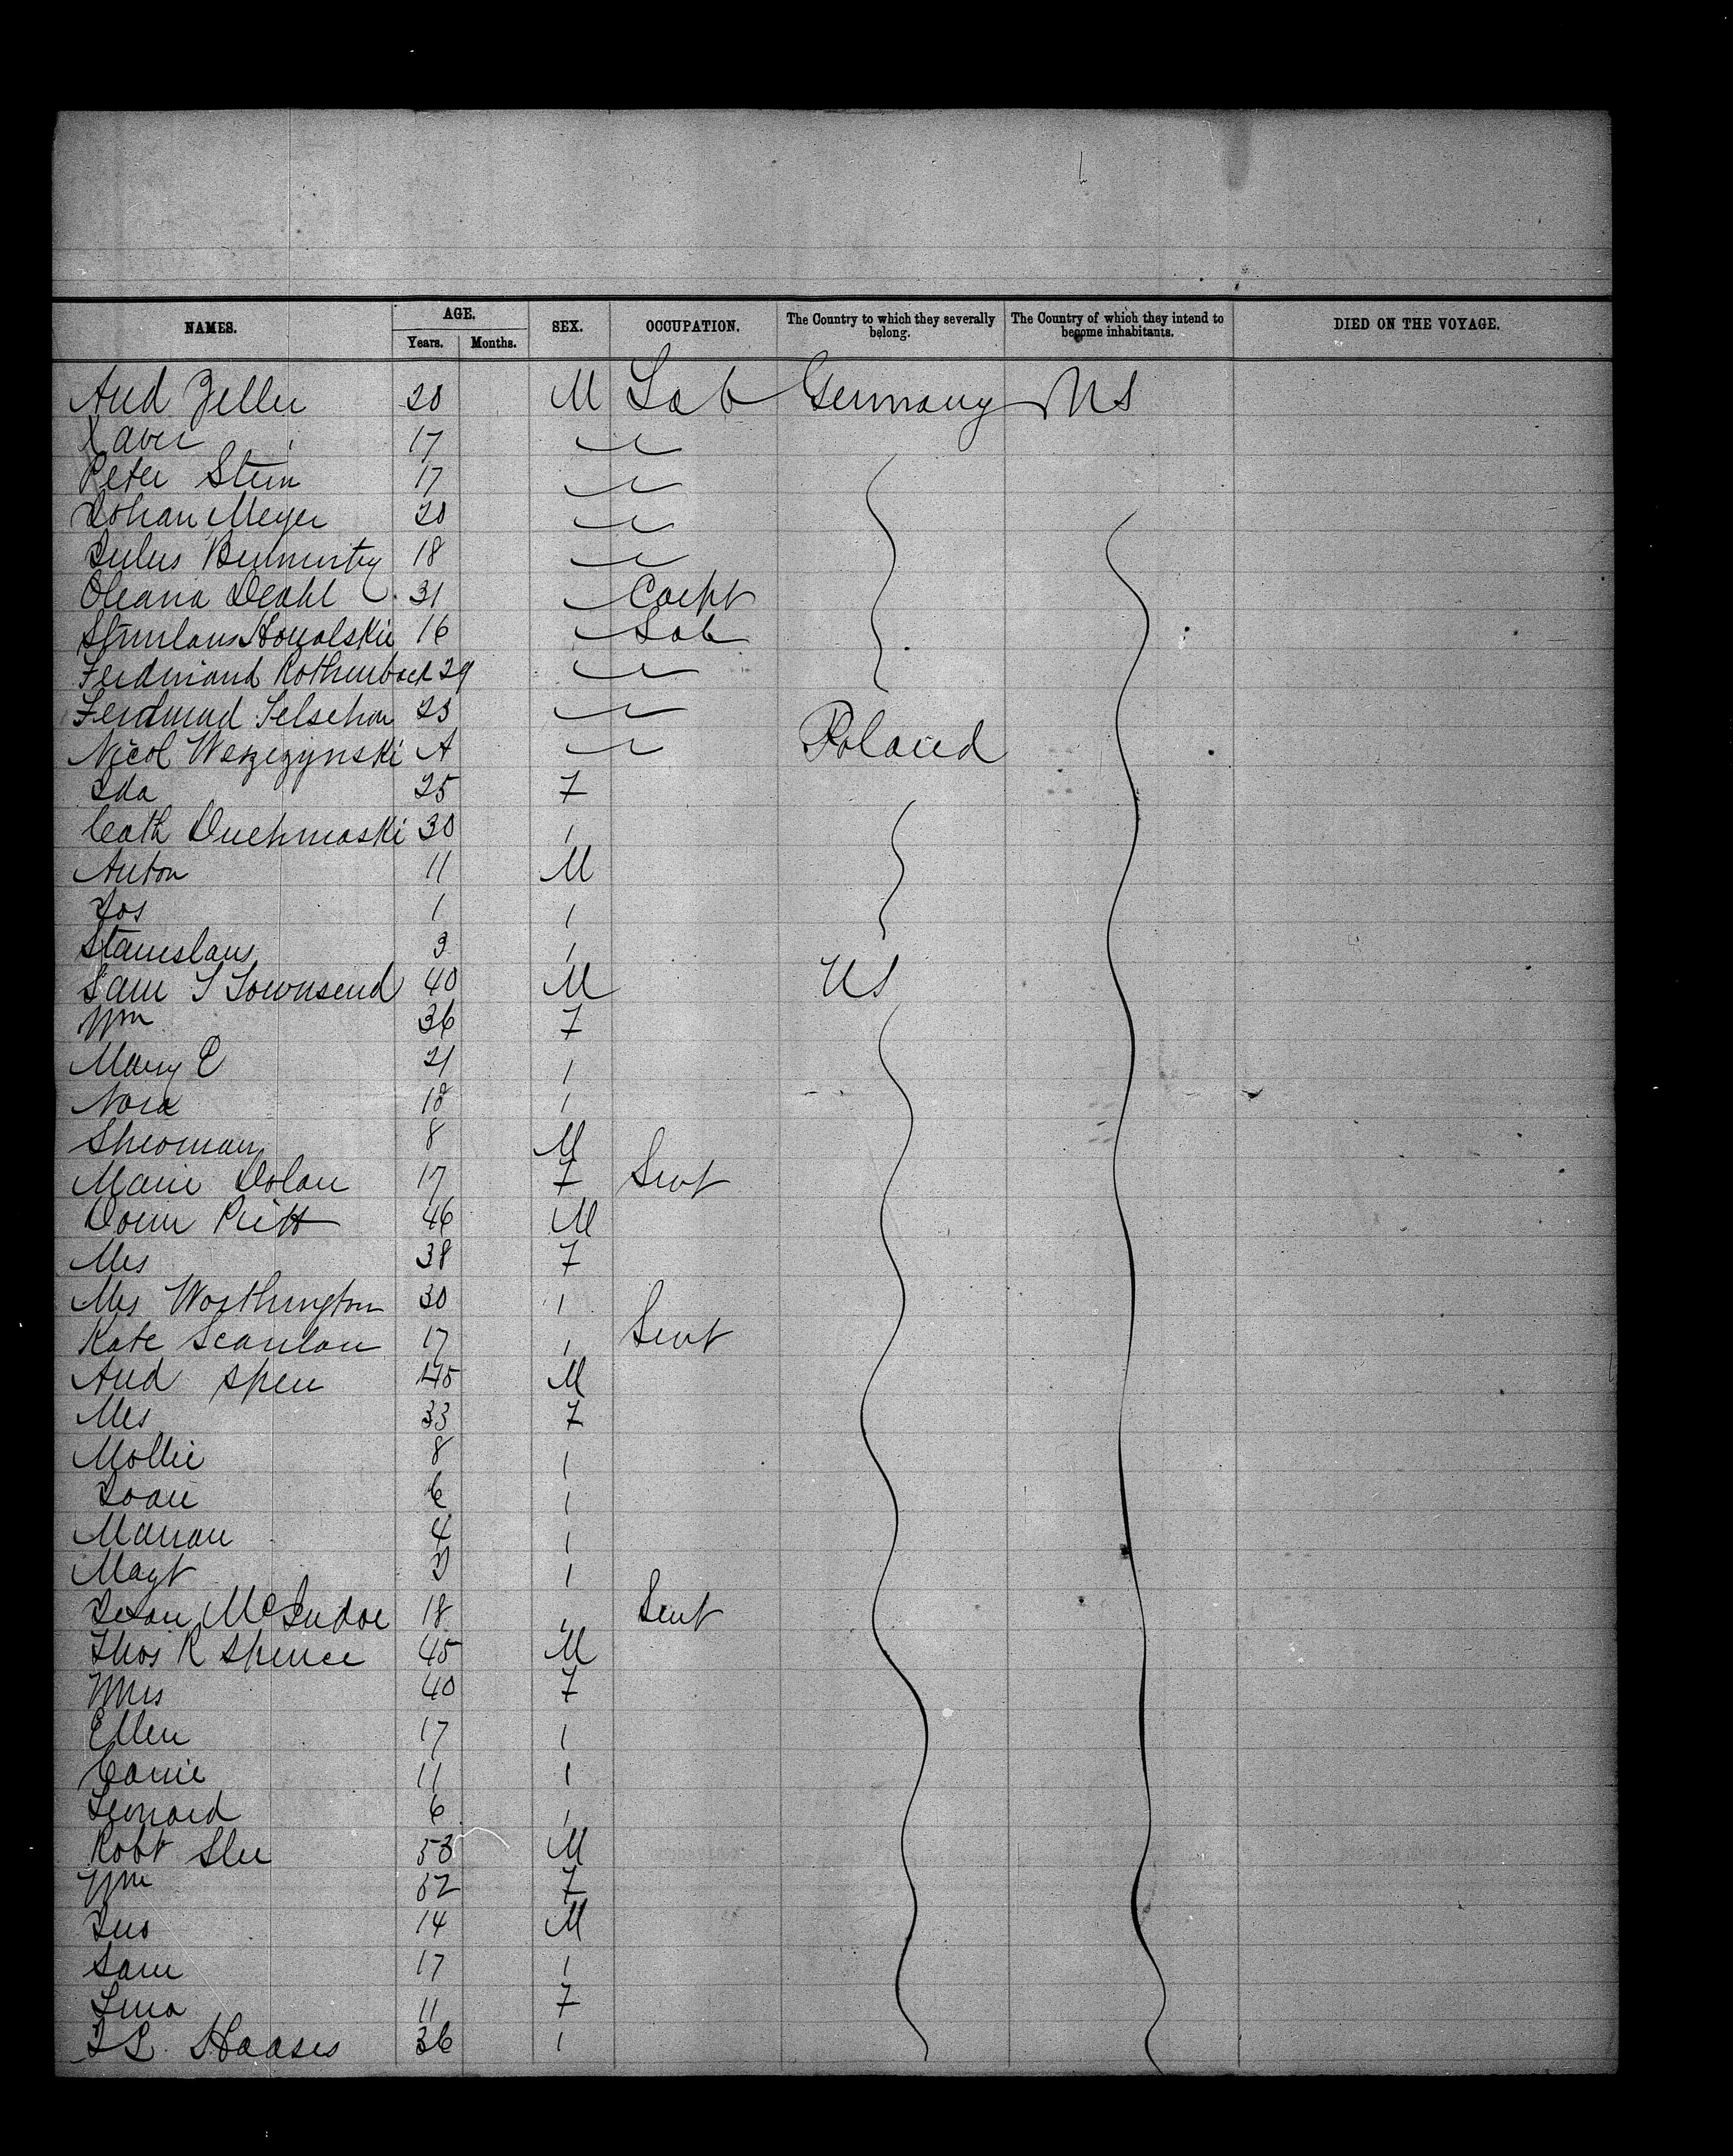 NAMES. AGE. SEX. OCCUPATION. The Country to which they severally belong. The Country of which they intend to become inhabitants. DIED ON THE VOYAGE.
Years. Months.
And Zeller 20 M Lab Germany US
Xaver 17
Peter Stein 17
Johan Meyer 20
Julius 18
Oleana Deahl 31 Carpt
Kowalskie 16 Lab
Ferdinand Rothenback 29
Ferdinand 23
Nicol A Poland
Ida 25 F
Cath Duchmaski 30 1
Anton 11 M
Jos 1 1
Stanislaus 3 1
Sam S Townsend 40 M US
Mrs 36 F
Mary E 21 1
Nora 18 1
Sherman 8 M
Marie Dolan 17 F Servt
Pritt 46 M
Mrs 38 F
Mrs Worthington 30 1
Kate Scanlon 17 1 Servt
And Speir 45 M
Mrs 33 F
Mollie 8 1
Joan 6 1
Marian 4 1
Magt 1
McIndoe 18 1 Servt
Thos R Spence 45 M
Mrs 40 F
Ellen 17 1
Carrie 11 1
Leonard 6 1
Robt Slee 53 M
Mrs 52 F
Jno 14 M
Sam 17 1
Lena 11 F
Haases 36 1